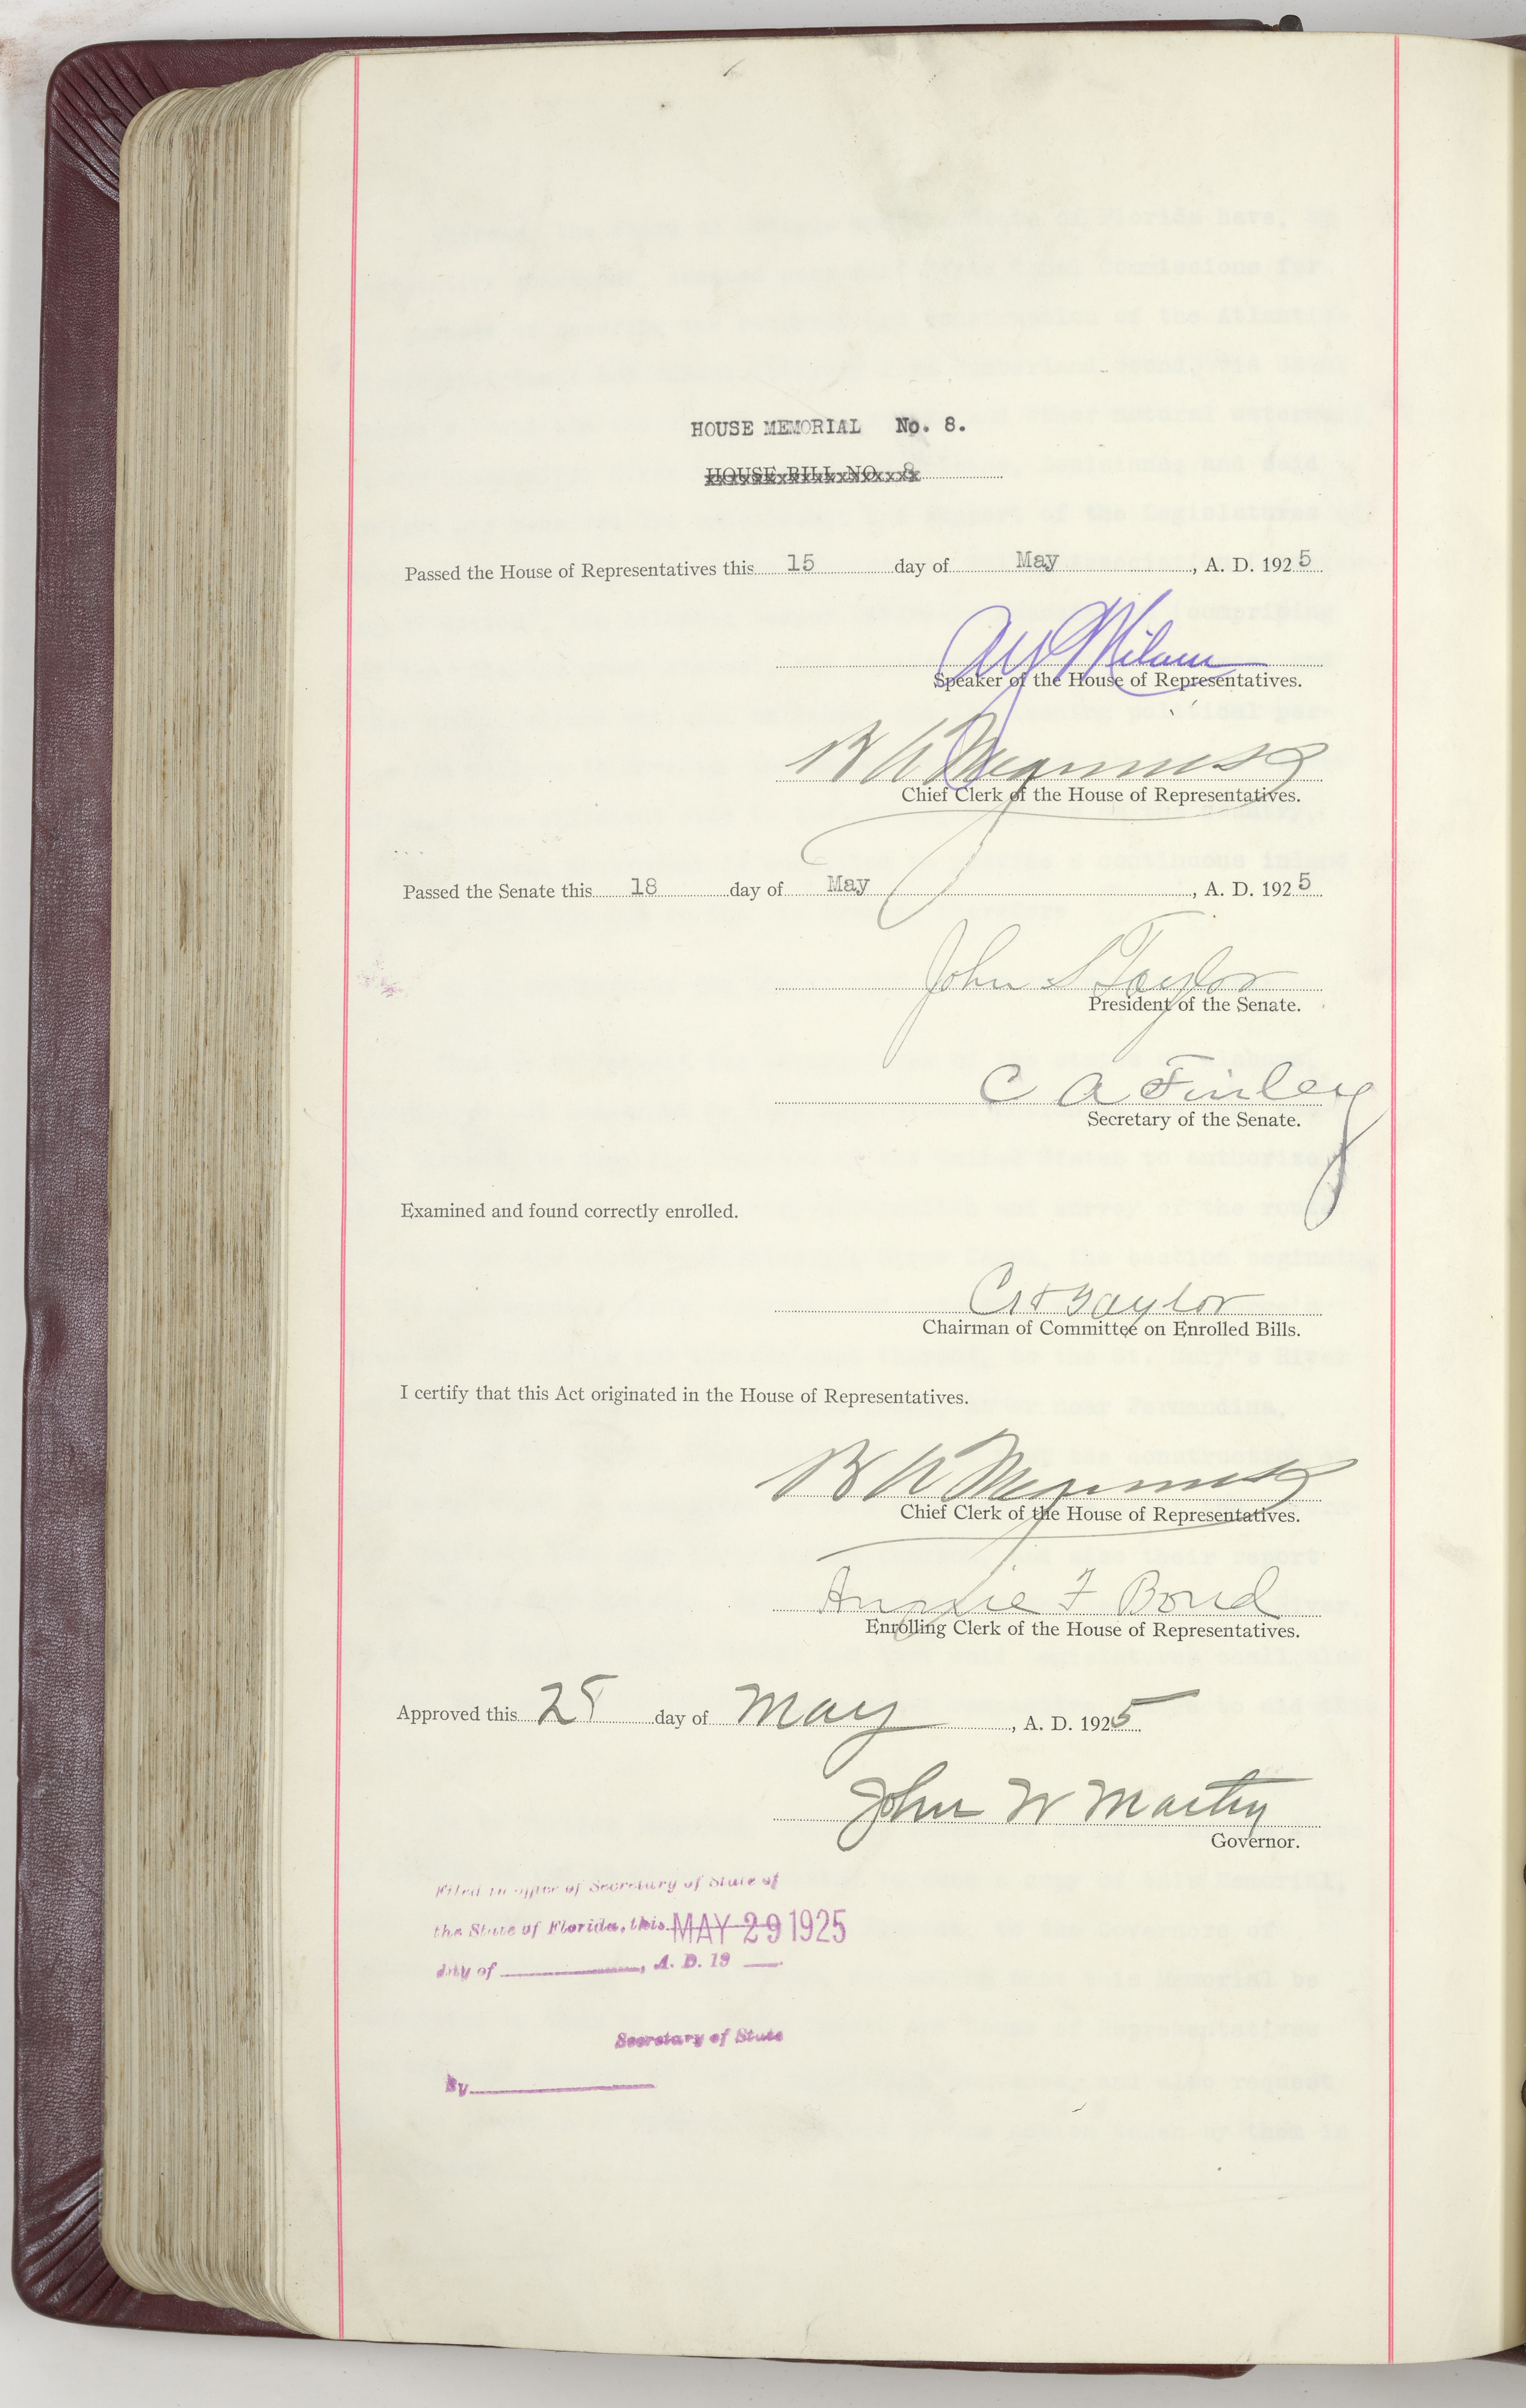 HOUSE MEMORIAL No. 8.
HOUSE BILL NO. 8
Passed the House of Representatives this 15 day of May, A. D. 1925
A Y Milam
Speaker of the House of Representatives.
B A Meginniss
Chief Clerk of the House of Representatives.
Passed the Senate this 18 day of May, A. D. 1925
John S Taylor
President of the Senate.
C A Finley
Secretary of the Senate.
Examined and found correctly enrolled.
Taylor
Chairman of Committee on Enrolled Bills.
I certify that this Act originated in the House of Representatives.
B A Meginniss
Chief Clerk of the House of Representatives.
Annie F Bond
Enrolling Clerk of the House of Representatives.
Approved this 28 day of May, A. D. 1925
John W Martin
Governor.
Filed in office of Secretary of State of
the State of Florida, this MAY 29 1925
day of , A. D. 19
Secretary of State
By